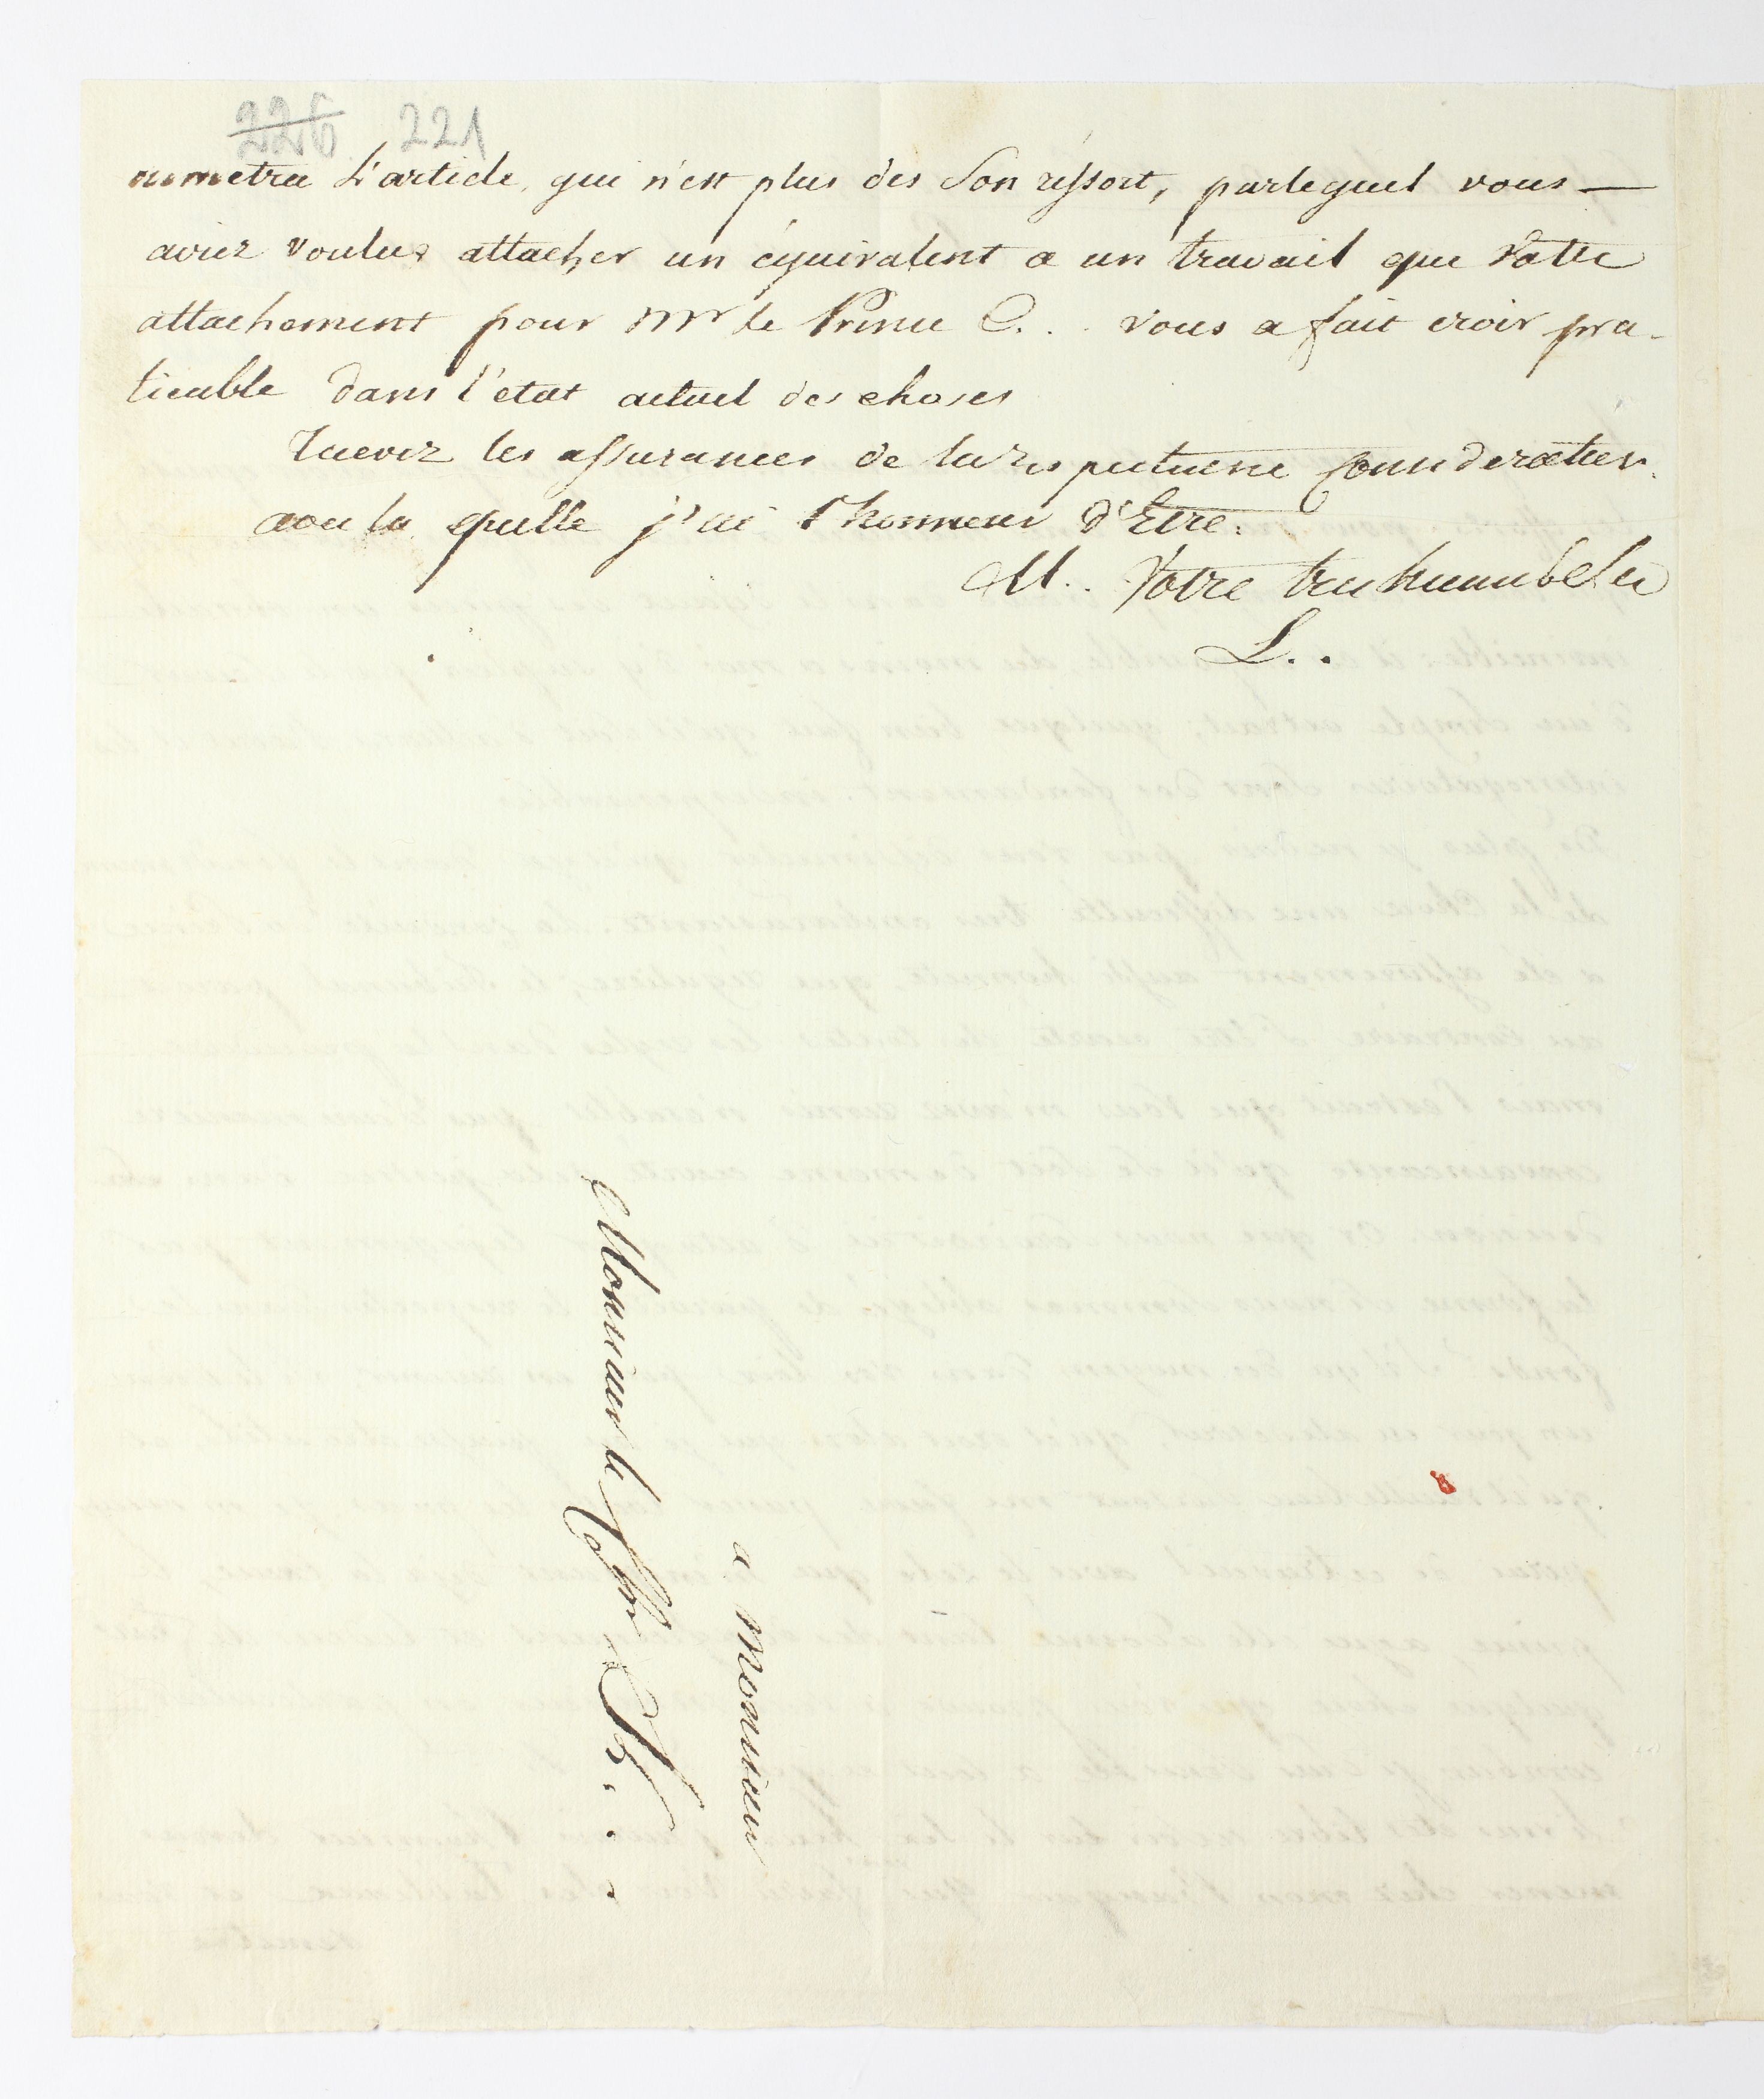 226 221
remettra L'article, qui n'est plus des Son ressort, par lequel vous —
aviez voulus attacher un équivalent a un travail que Votre
attachement pour Mr le Prince C. . . vous a fait croir pra-
ticable dans l'etat actuel des choses
Recevez les assurances de la respectueuse Consideration
avec la quelle j'ai l'honneur d'Etre.
M. . Votre tres humble Ser
L. .
a Monsieur
Monsieur le